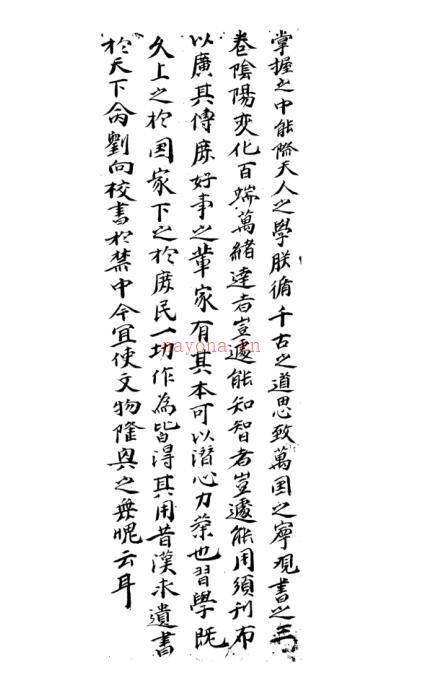 掌握之中能際天人之學朕循千古之道思致萬国之寧观書之三
卷陰陽变化百端萬緒達者豈遽能知智者豈遽能用須刊布
以廣其傳庶好事之輩家有其本可以潛心力業也習學既
久上之於国家下之於庶民一切作為皆得其用昔漢求遺書
於天下命劉向校書於禁中今宜使文物隆興之無愧云耳
nayona.cn